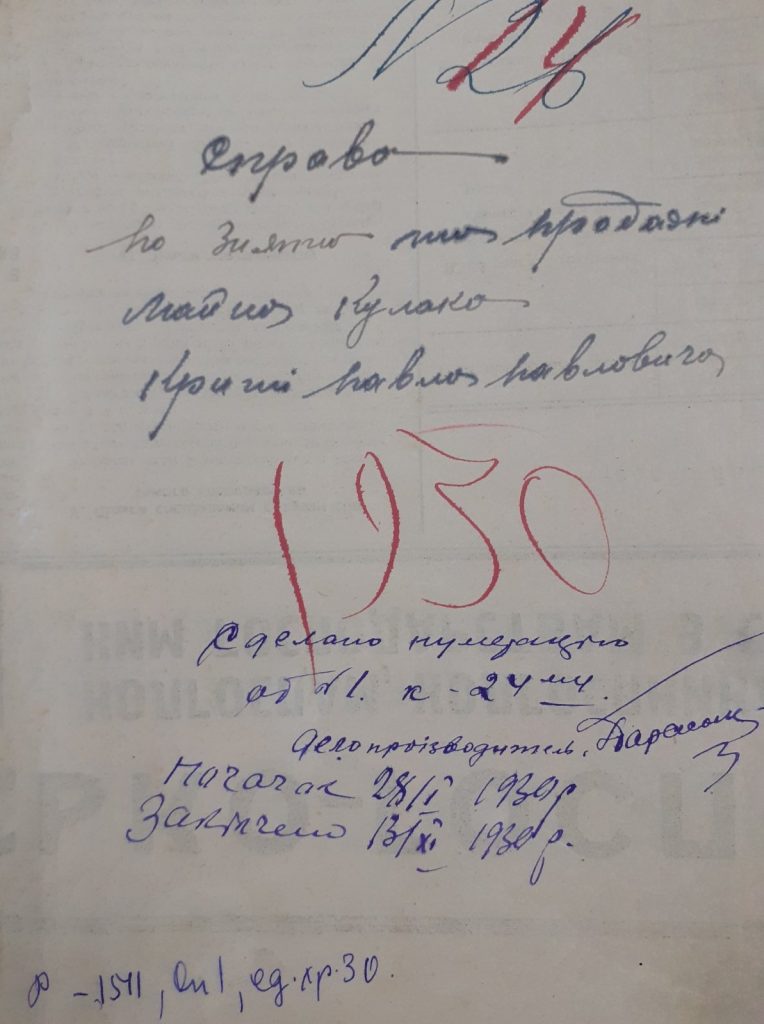 N 24
Справа
по Зняттю та продажі
майна Кулака
Криті Павла Павловича
1930
Сделано нумерацію
от №1. к - 24 мч.
Делопроізводитель,
Начачає 28/I 1930 р
Закінчено 13/XI 1930 р.
Р - 1511, Оп 1, ед. хр. 30.